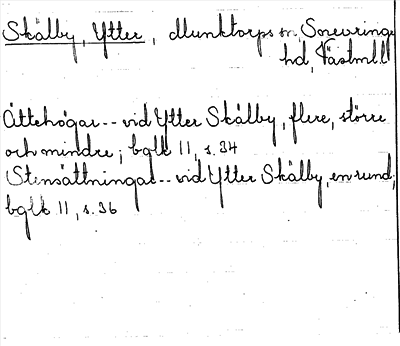 Skälby, Ytter, Munktorps sn. Snevringe
hd, Västml.
Ättehögar -- vid Ytter Skälby, flere, större
och mindre; bqlk 11, s. 34
Stensättningar -- vid Ytter Skälby, en rund;
bqlk 11, s. 36